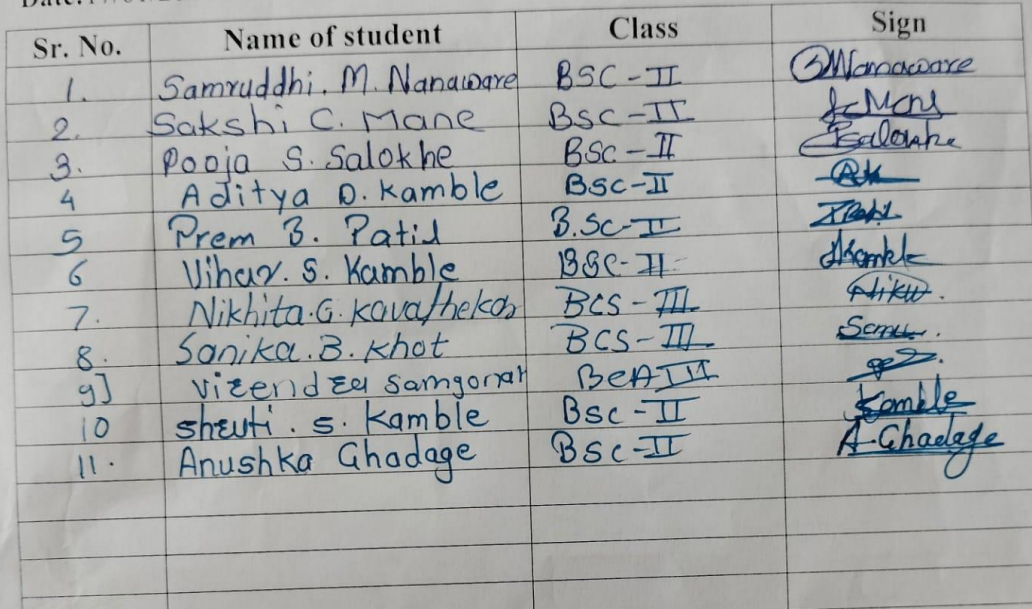 Sr. No. Name of student Class Sign
1. Samruddhi. M. Nanaware BSC-II Nanaware
2. Sakshi C. Mane BSC-II
3. Pooja S. Salokhe BSC-II
4 Aditya D. Kamble BSC-II
5 Prem B. Patil B.Sc-II
6 Vihar. S. Kamble BSC-II
7. Nikhita.G. Kavathekar BCS-III Niku.
8. Sanika.B. Khot BCS-III
9] samgonar
10 shruti. S. Kamble BSC-II Kamble
11. Anushka Ghadage BSC-II A.Ghadage